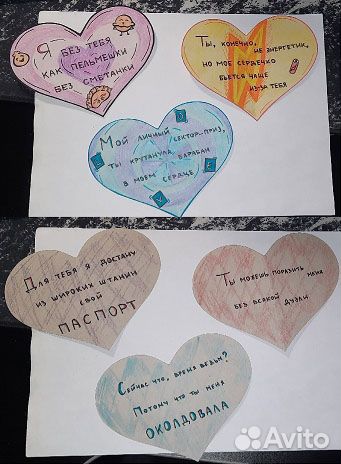 Я БЕЗ ТЕБЯ
КАК ПЕЛЬМЕШКИ
БЕЗ СМЕТАНКИ
Ты, конечно,
не энергетик,
но мое сердечко
бьется чаще
из-за тебя
Мой личный сектор-приз,
ты крутанула барабан
в моем сердце
Для тебя я достану
из широких штанин
свой
ПАСПОРТ
Ты можешь поразить меня
без всякой дуэли
Сейчас что, время ведьм?
Потому что ты меня
ОКОЛДОВАЛА
Avito